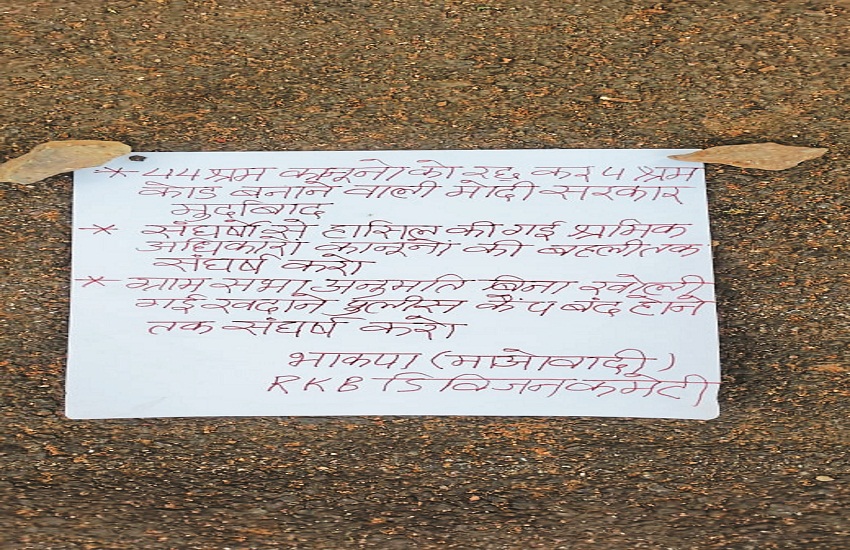 * 44 श्रम कानूनो को रद्द कर 4 श्रम
कोड बनाने वाली मोदी सरकार
मुर्दाबाद
* संघर्षो से हासिल की गई श्रमिक
अधिकारो कानूनो की बहाली तक
संघर्ष करो
* ग्राम सभा अनुमति बिना खोली
गई खदाने पुलीस कैंप बंद होने
तक संघर्ष करो
भाकपा (माओवादी)
RKB डिविजन कमेटी